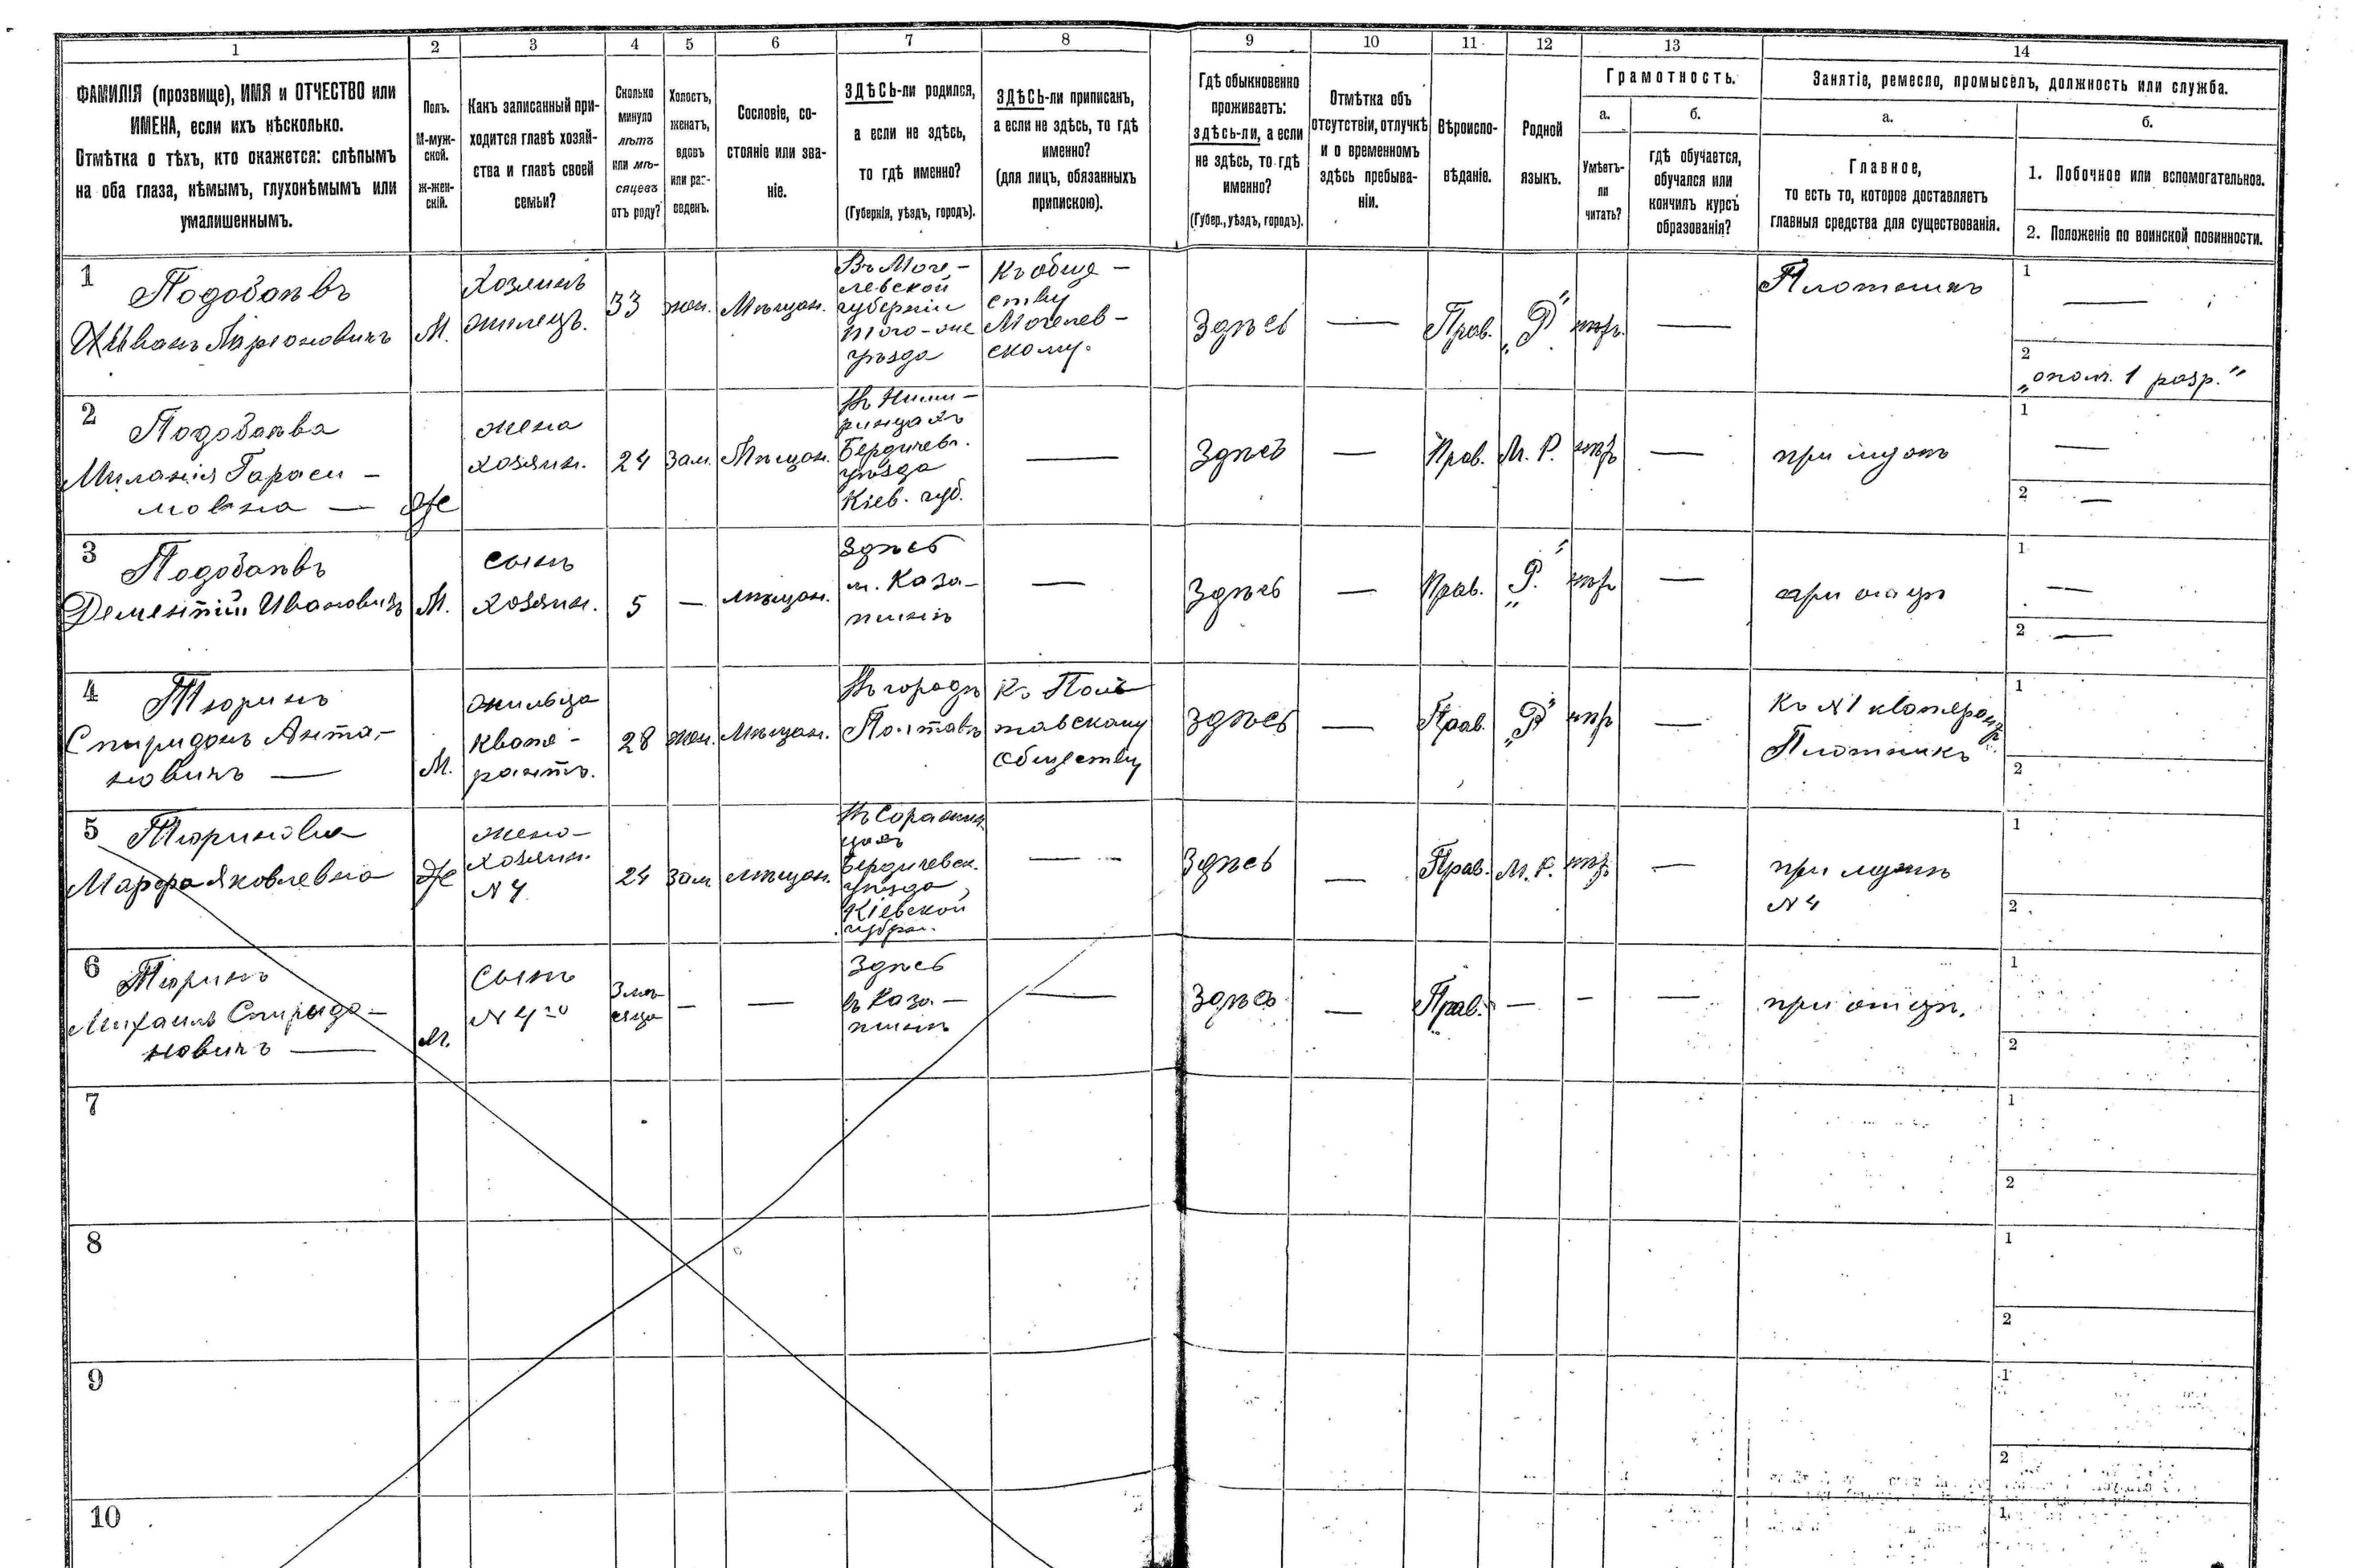 1 2 3 4 5 6 7 8 9 10 11 12 13 14
ФАМИЛІЯ (прозвище), ИМЯ и ОТЧЕСТВО или
ИМЕНА, если ихъ нѣсколько.
Отмѣтка о тѣхъ, кто окажется: слѣпымъ
на оба глаза, нѣмымъ, глухонѣмымъ или
умалишеннымъ.
Полъ.
М-муж-
ской.
Ж-жен-
скій.
Какъ записанный при-
ходится главѣ хозяй-
ства и главѣ своей
семьи?
Сколько
минуло
лѣтъ
или мѣ-
сяцевъ
отъ роду?
Холостъ,
женатъ,
вдовъ
или раз-
веденъ.
Сословіе, со-
стояніе или зва-
ніе.
ЗДѢСЬ-ли родился,
а если не здѣсь,
то гдѣ именно?
(Губернія, уѣздъ, городъ).
ЗДѢСЬ-ли приписанъ,
а если не здѣсь, то гдѣ
именно?
(для лицъ, обязанныхъ
припискою).
Гдѣ обыкновенно
проживаетъ:
здѣсь-ли, а если
не здѣсь, то гдѣ
именно?
(Губер., уѣздъ, городъ).
Отмѣтка объ
отсутствіи, отлучкѣ
и о временномъ
здѣсь пребыва-
ніи.
Вѣроиспо-
вѣданіе.
Родной
языкъ.
Грамотность.
а.
Умѣетъ-
ли
читать?
б.
гдѣ обучается,
обучался или
кончилъ курсъ
образованія?
Занятіе, ремесло, промыселъ, должность или служба.
а.
Главное,
то есть то, которое доставляетъ
главныя средства для существованія.
б.
1. Побочное или вспомогательное.
2. Положеніе по воинской повинности.
1
Подобаѣвъ
Иванъ
М.
Хозяинъ
жилецъ.
33
жен.
Мѣщан.
Въ Моге-
левской
губерніи
того-же
уѣзда
Къ обще-
ству
Могелев-
скому.
Здѣсь
—
Прав.
„Р"
—
Плотникъ
1 —
2
„опол. 1 разр."
2
Подобаѣва
Миланія Гараси-
мовна —
Ж
жена
хозяин.
24
Зам.
Мѣщан.
Бердичев.
уѣзда
Кіев. губ.
—
Здѣсь
—
Прав.
М. Р.
—
при мужѣ
1 —
2 —
3
Подобаѣвъ
Дементій Ивановичъ
М.
сынъ
хозяин.
5
—
мѣщан.
Здѣсь
м. Каза-
тинѣ
—
Здѣсь
—
Прав.
„Р."
—
при отцѣ
1 —
2 —
4
Тюринъ
Спиридонъ Анта-
новичъ —
М.
жильца
кварти-
рантъ.
28
жен.
Мѣщан.
Въ городѣ
Полтавѣ
Къ Пол-
тавскому
обществу
Здѣсь
—
Прав.
„Р"
—
Къ №1
Плотникъ
1
2
5
Тюринова
Марфа Яковлевна
Ж
жена-
хозяин.
№ 4
24
Зам
мѣщан.
Бердичевск.
уѣзда,
Кіевской
—
Здѣсь
—
Прав.
М. Р.
—
при мужѣ
№ 4
1
2
6
Тюринъ
Михаилъ Спиридо-
новичъ —
м.
Сынъ
№ 4го
3 мѣ-
сяца
—
—
Здѣсь
въ Каза-
тинѣ
—
Здѣсь
—
Прав.
—
—
—
при отцѣ.
1
2
7
1
2
8
1
2
9
1
2
10
1